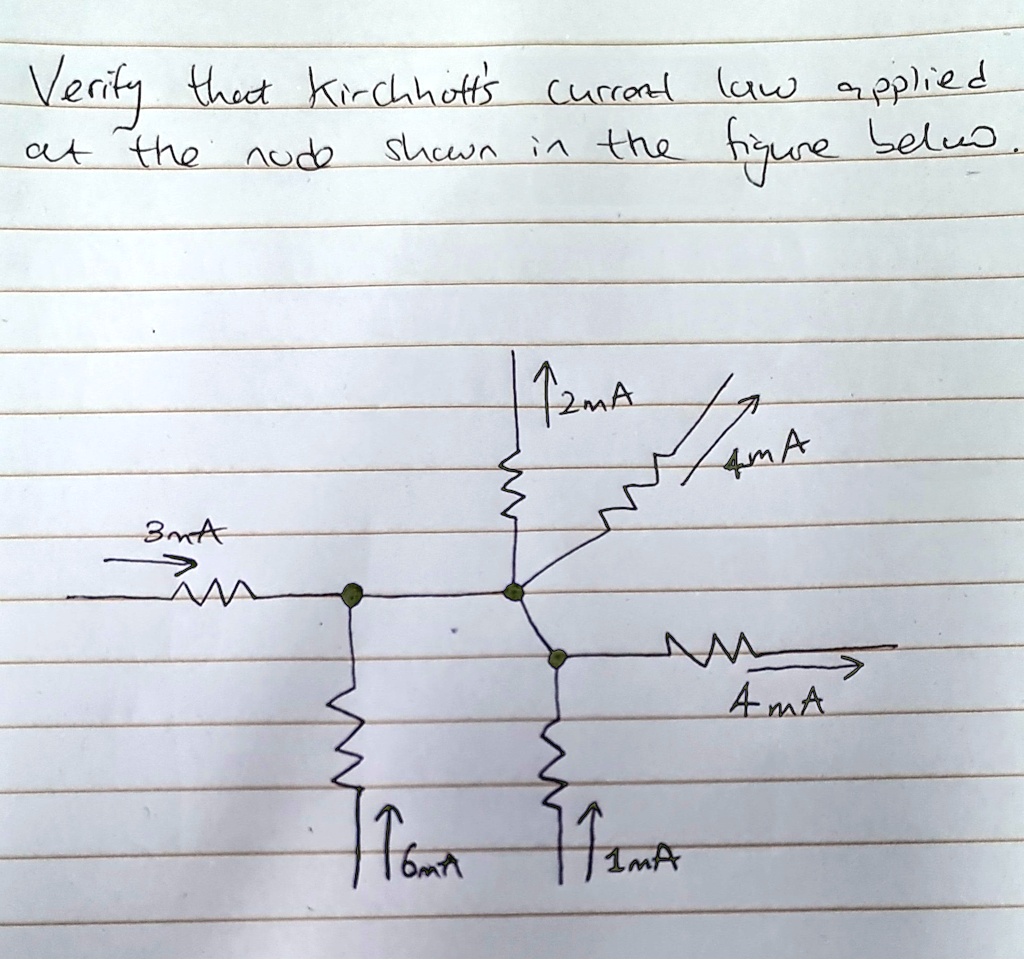 Verify that Kirchhoff's current law applied
at the node shown in the figure below.
2mA
4mA
3mA
4mA
6mA
1mA